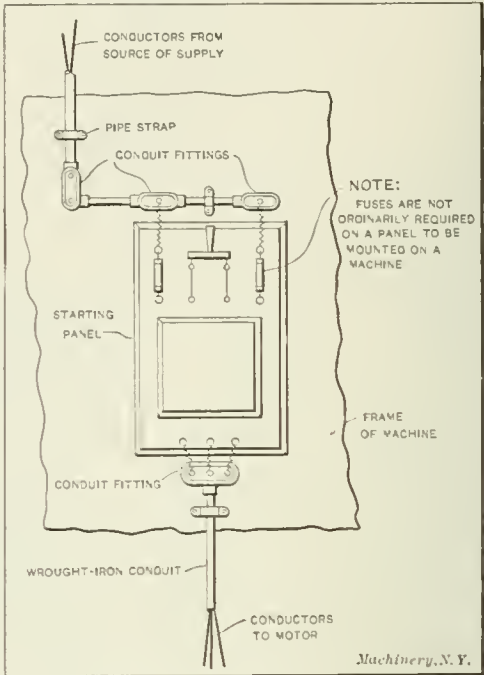 CONDUCTORS FROM
SOURCE OF SUPPLY
PIPE STRAP
CONDUIT FITTINGS
NOTE:
FUSES ARE NOT
ORDINARILY REQUIRED
ON A PANEL TO BE
MOUNTED ON A
MACHINE
STARTING
PANEL
FRAME
OF MACHINE
CONDUIT FITTING
WROUGHT-IRON CONDUIT
CONDUCTORS
TO MOTOR
Machinery, N.Y.